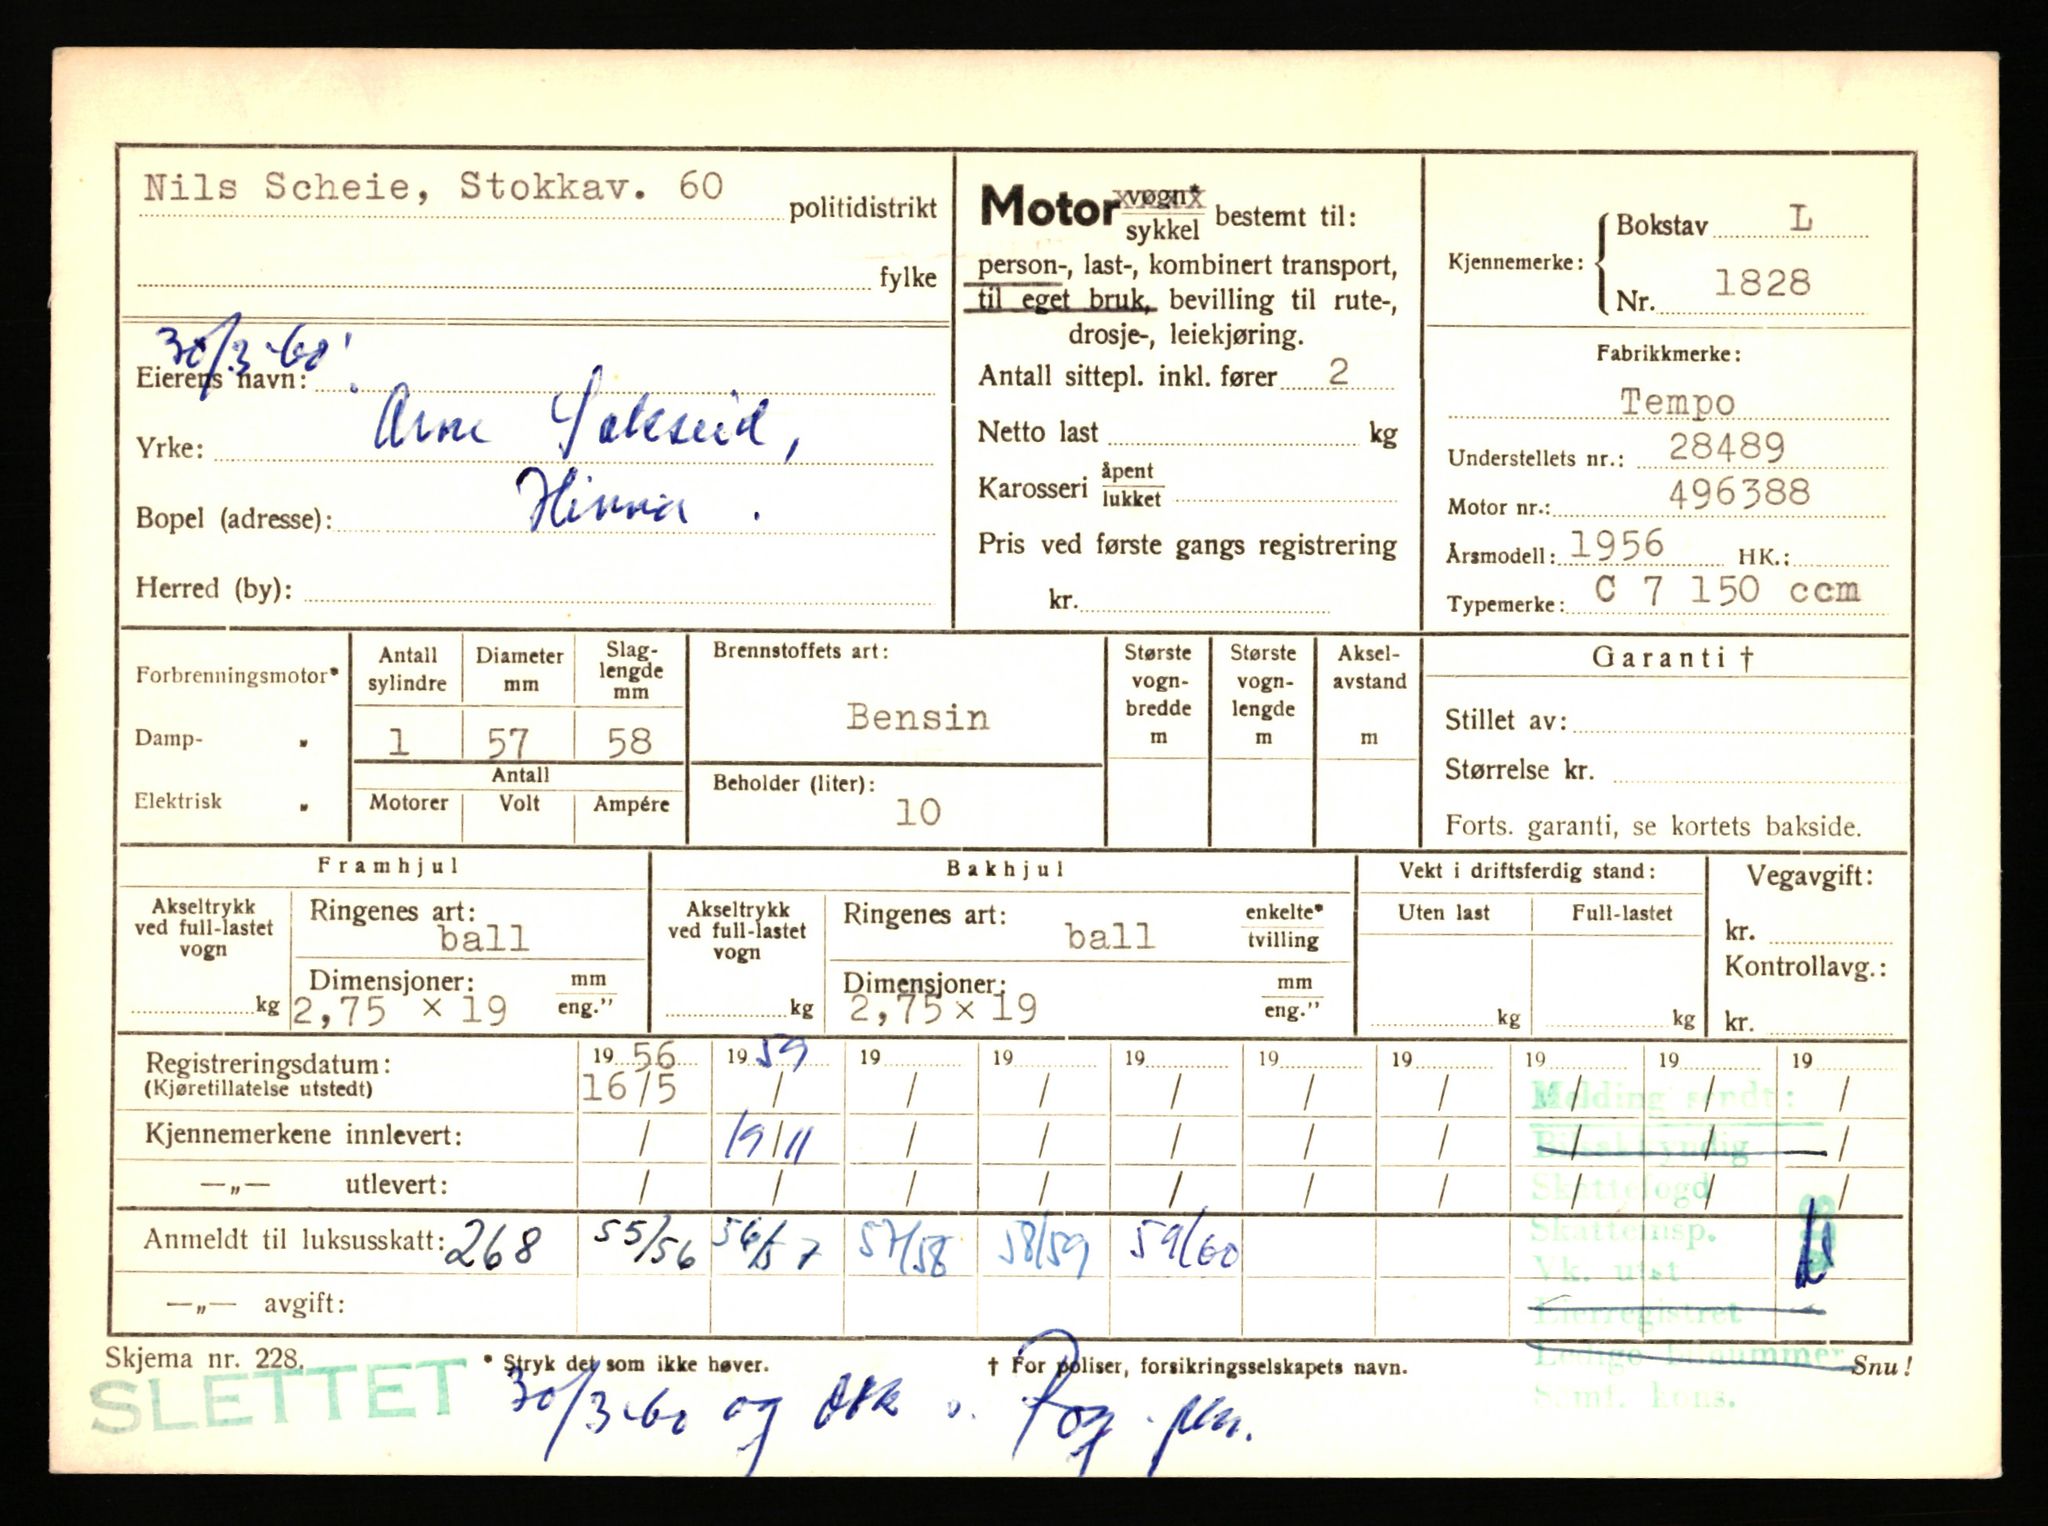 Nils Scheie, Stokkav. 60 politidistrikt
fylke
30/3-60
Eierens navn:
Arne
Yrke:
Hinna.
Bopel (adresse):
Herred (by):
Motor vogn* / sykkel bestemt til:
person-, last-, kombinert transport,
til eget bruk, bevilling til rute-,
drosje-, leiekjøring.
Antall sittepl. inkl. fører 2
Netto last kg
Karosseri åpent / lukket
Pris ved første gangs registrering
kr.
Kjennemerke: Bokstav L
Nr. 1828
Fabrikkmerke:
Tempo
Understellets nr.: 28489
Motor nr.: 496388
Årsmodell: 1956 HK.:
Typemerke: C 7 150 ccm
Forbrenningsmotor*
Damp- „
Elektrisk „
Antall sylindre
1
Diameter mm
57
Slag-
lengde
mm
58
Antall
Motorer Volt Ampére
Brennstoffets art:
Bensin
Beholder (liter):
10
Største
vogn-
bredde
m
Største
vogn-
lengde
m
Aksel-
avstand
m
Garanti †
Stillet av:
Størrelse kr.
Forts. garanti, se kortets bakside.
Framhjul
Akseltrykk
ved full-lastet
vogn
kg
Ringenes art:
ball
Dimensjoner: mm / eng.”
2,75 × 19
Bakhjul
Akseltrykk
ved full-lastet
vogn
kg
Ringenes art: enkelte* / tvilling
ball
Dimensjoner: mm / eng.”
2,75 × 19
Vekt i driftsferdig stand:
Uten last Full-lastet
kg kg
Vegavgift:
kr.
Kontrollavg.:
kr.
Registreringsdatum: 19 56 19 59 19 19 19 19 19 19 19 19
(Kjøretillatelse utstedt) 16/5 / / / / / / / / /
Kjennemerkene innlevert: / 19/11 / / / / / / / /
—„— utlevert: / / / / / / / / / /
Anmeldt til luksusskatt: 268 55/56 56/57 57/58 58/59 59/60
—„— avgift:
Melding sendt:
Bilsakkyndig
Skattefogd
Skatteinsp.
Vk. utst
Eierregistret
Ledige nummer
Samf. kons.
Skjema nr. 228.
* Stryk det som ikke høver.
† For poliser, forsikringsselskapets navn.
Snu!
SLETTET
30/3-60 og